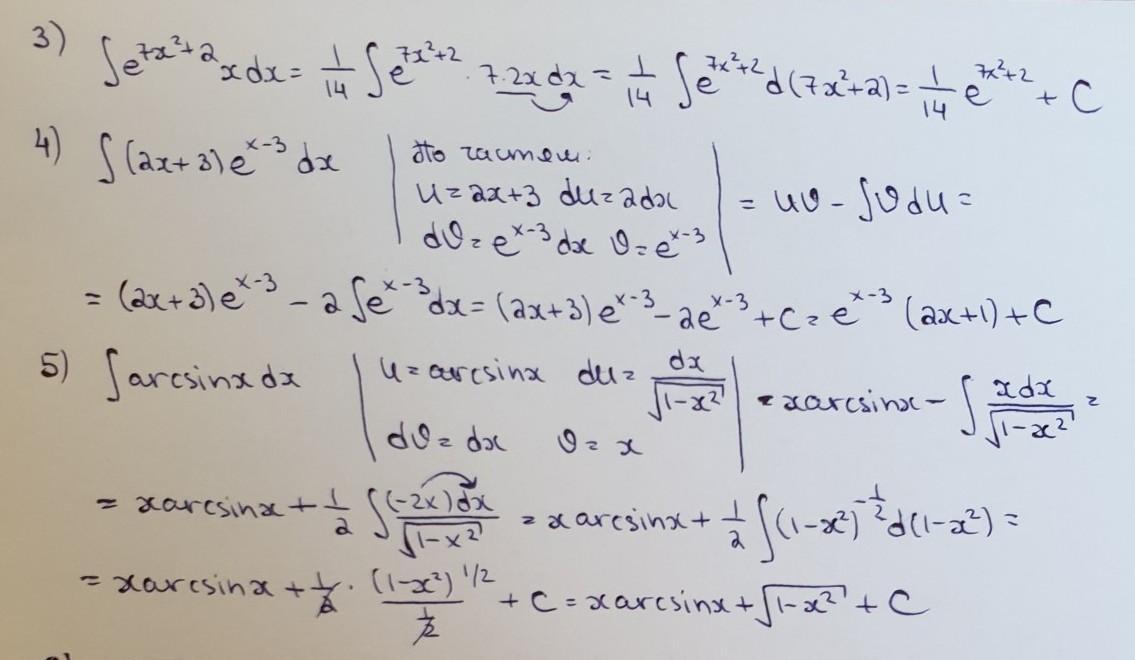 3) ∫e^{7x²+2} x dx = 1/14 ∫e^{7x²+2} · 7·2x dx = 1/14 ∫e^{7x²+2} d(7x²+2) = 1/14 e^{7x²+2} + C
4) ∫(2x+3)e^{x-3} dx | По частям: u=2x+3 du=2dx dv=e^{x-3}dx v=e^{x-3} | = uv - ∫v du =
= (2x+3)e^{x-3} - 2∫e^{x-3}dx = (2x+3)e^{x-3} - 2e^{x-3} + C = e^{x-3}(2x+1) + C
5) ∫arcsinx dx | u=arcsinx du=dx/√(1-x²) dv=dx v=x | = xarcsinx - ∫xdx/√(1-x²) =
= xarcsinx + 1/2 ∫(-2x)dx/√(1-x²) = xarcsinx + 1/2 ∫(1-x²)^{-1/2} d(1-x²) =
= xarcsinx + 1/2 · (1-x²)^{1/2}/(1/2) + C = xarcsinx + √(1-x²) + C